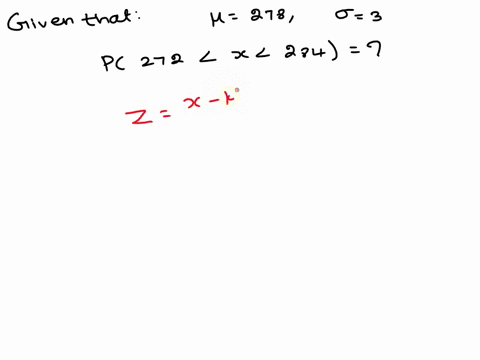 Given that: μ = 278, σ = 3
P( 272 < x < 284) = ?
Z = x - μ